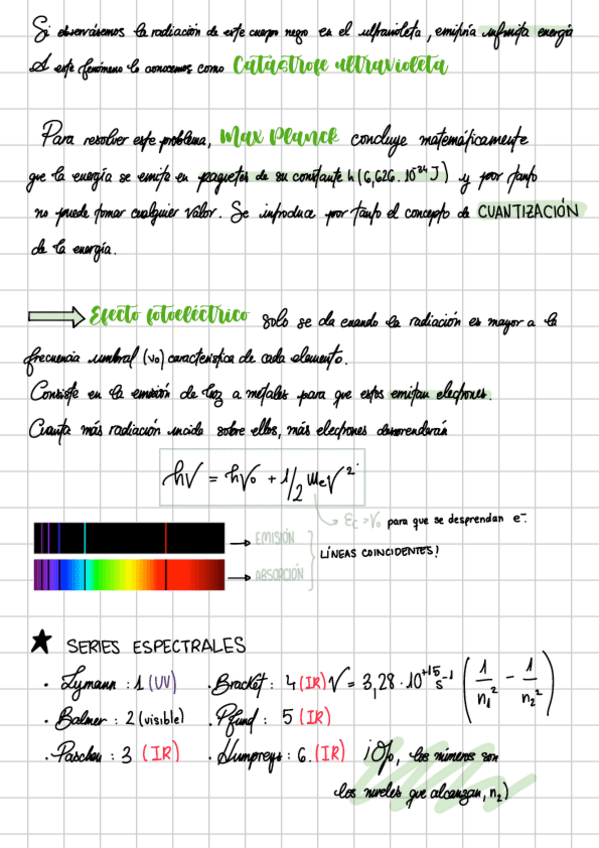 Si observásemos la radiación de este cuerpo negro en el ultravioleta, emitiría infinita energía
A este fenómeno lo conocemos como Catástrofe ultravioleta
Para resolver este problema, Max Planck concluye matemáticamente
que la energía se emite en paquetes de su constante h (6,626·10³⁴ J) y por tanto
no puede tomar cualquier valor. Se introduce por tanto el concepto de CUANTIZACIÓN
de la energía.
Efecto fotoeléctrico solo se da cuando la radiación es mayor a la
frecuencia umbral (ν₀) característica de cada elemento.
Consiste en la emisión de luz a metales para que estos emitan electrones.
Cuanta más radiación incida sobre ellos, más electrones desprenderán
hν = hν₀ + 1/2 meV²
Ec > ν₀ para que se desprendan e⁻.
EMISIÓN
LÍNEAS COINCIDENTES!
ABSORCIÓN
★ SERIES ESPECTRALES
· Lymann : 1 (UV) · Bracket : 4 (IR) ν = 3,28 · 10⁺¹⁵ s⁻¹ (1/n₁² - 1/n₂²)
· Balmer : 2 (visible) · Pfund : 5 (IR)
· Paschen : 3 (IR) · Humpreys : 6. (IR) ¡Ojo, los números son
los niveles que alcanzan, n₂)